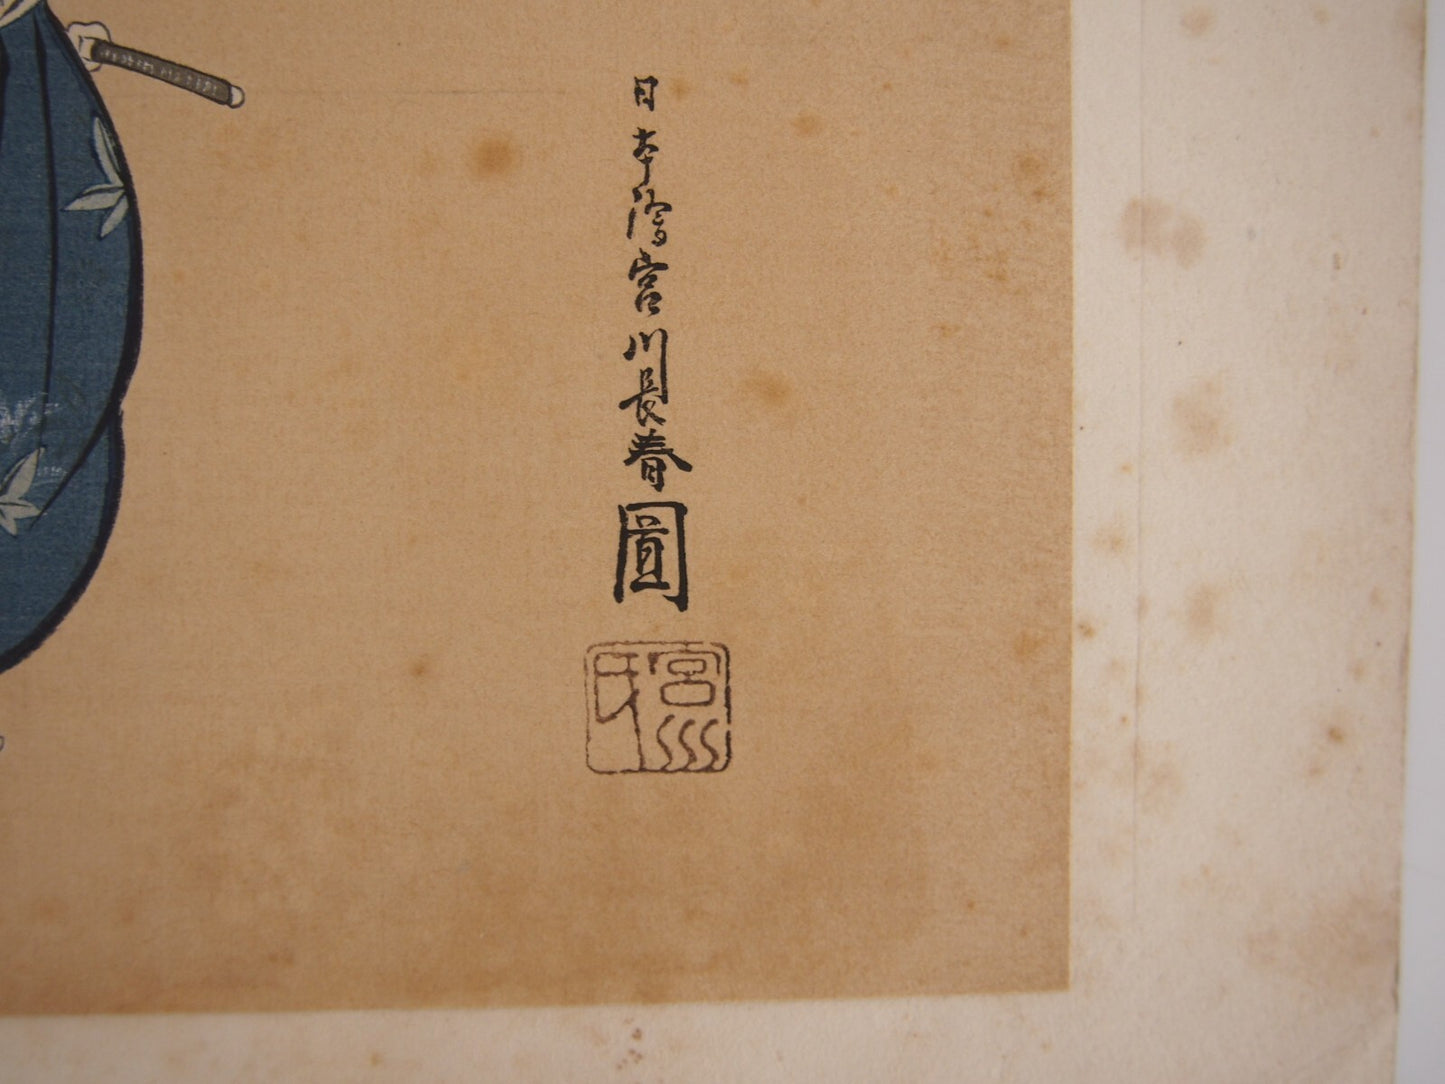 日本繪宮川長春圖
宮川
氏